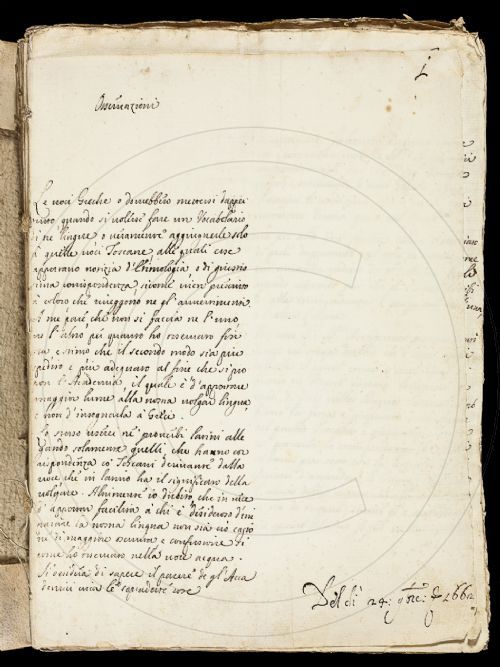 Osservazioni
Le voci Greche o dovrebbero mettersi dapper
tutto quando si volesse fare un Vocabolario
di tre lingue o veramente aggiugnerle solo
a quelle voci Toscane, alle quali esse
apportano notizia d'Etimologia, o di giusta
corrispondenza, sicome vien prescritto
a coloro che veggono ne gl'avvertimenti
et me pare che non si faccia ne l'uno
ne l'altro per quanto ho osservato fin
ora, e stimo che il secondo modo sia più
spedito e più adeguato al fine che si pro
pon l'Accademia, il quale è d'apportare
maggior lume alla nostra volgar lingua,
e non d'insegnare la Greca.
Lo stesso nelle ne' proverbi latini alle
gando solamente quelli che hanno cor
rispondenza co' Toscani derivante dalla
voce che in latino ha il significato della
volgare. Altrimente io dubito, che in vece
d'apportar facilità a chi è desideroso d'im
parare la nostra lingua non sia ciò cagio
ne di maggiore oscurità e confusione si
come ho osservato nella voce acqua.
Si desidera di sapere il parere de gl'Acca
demici circa le seguenti cose
Del dì 24: 9bre: 1662